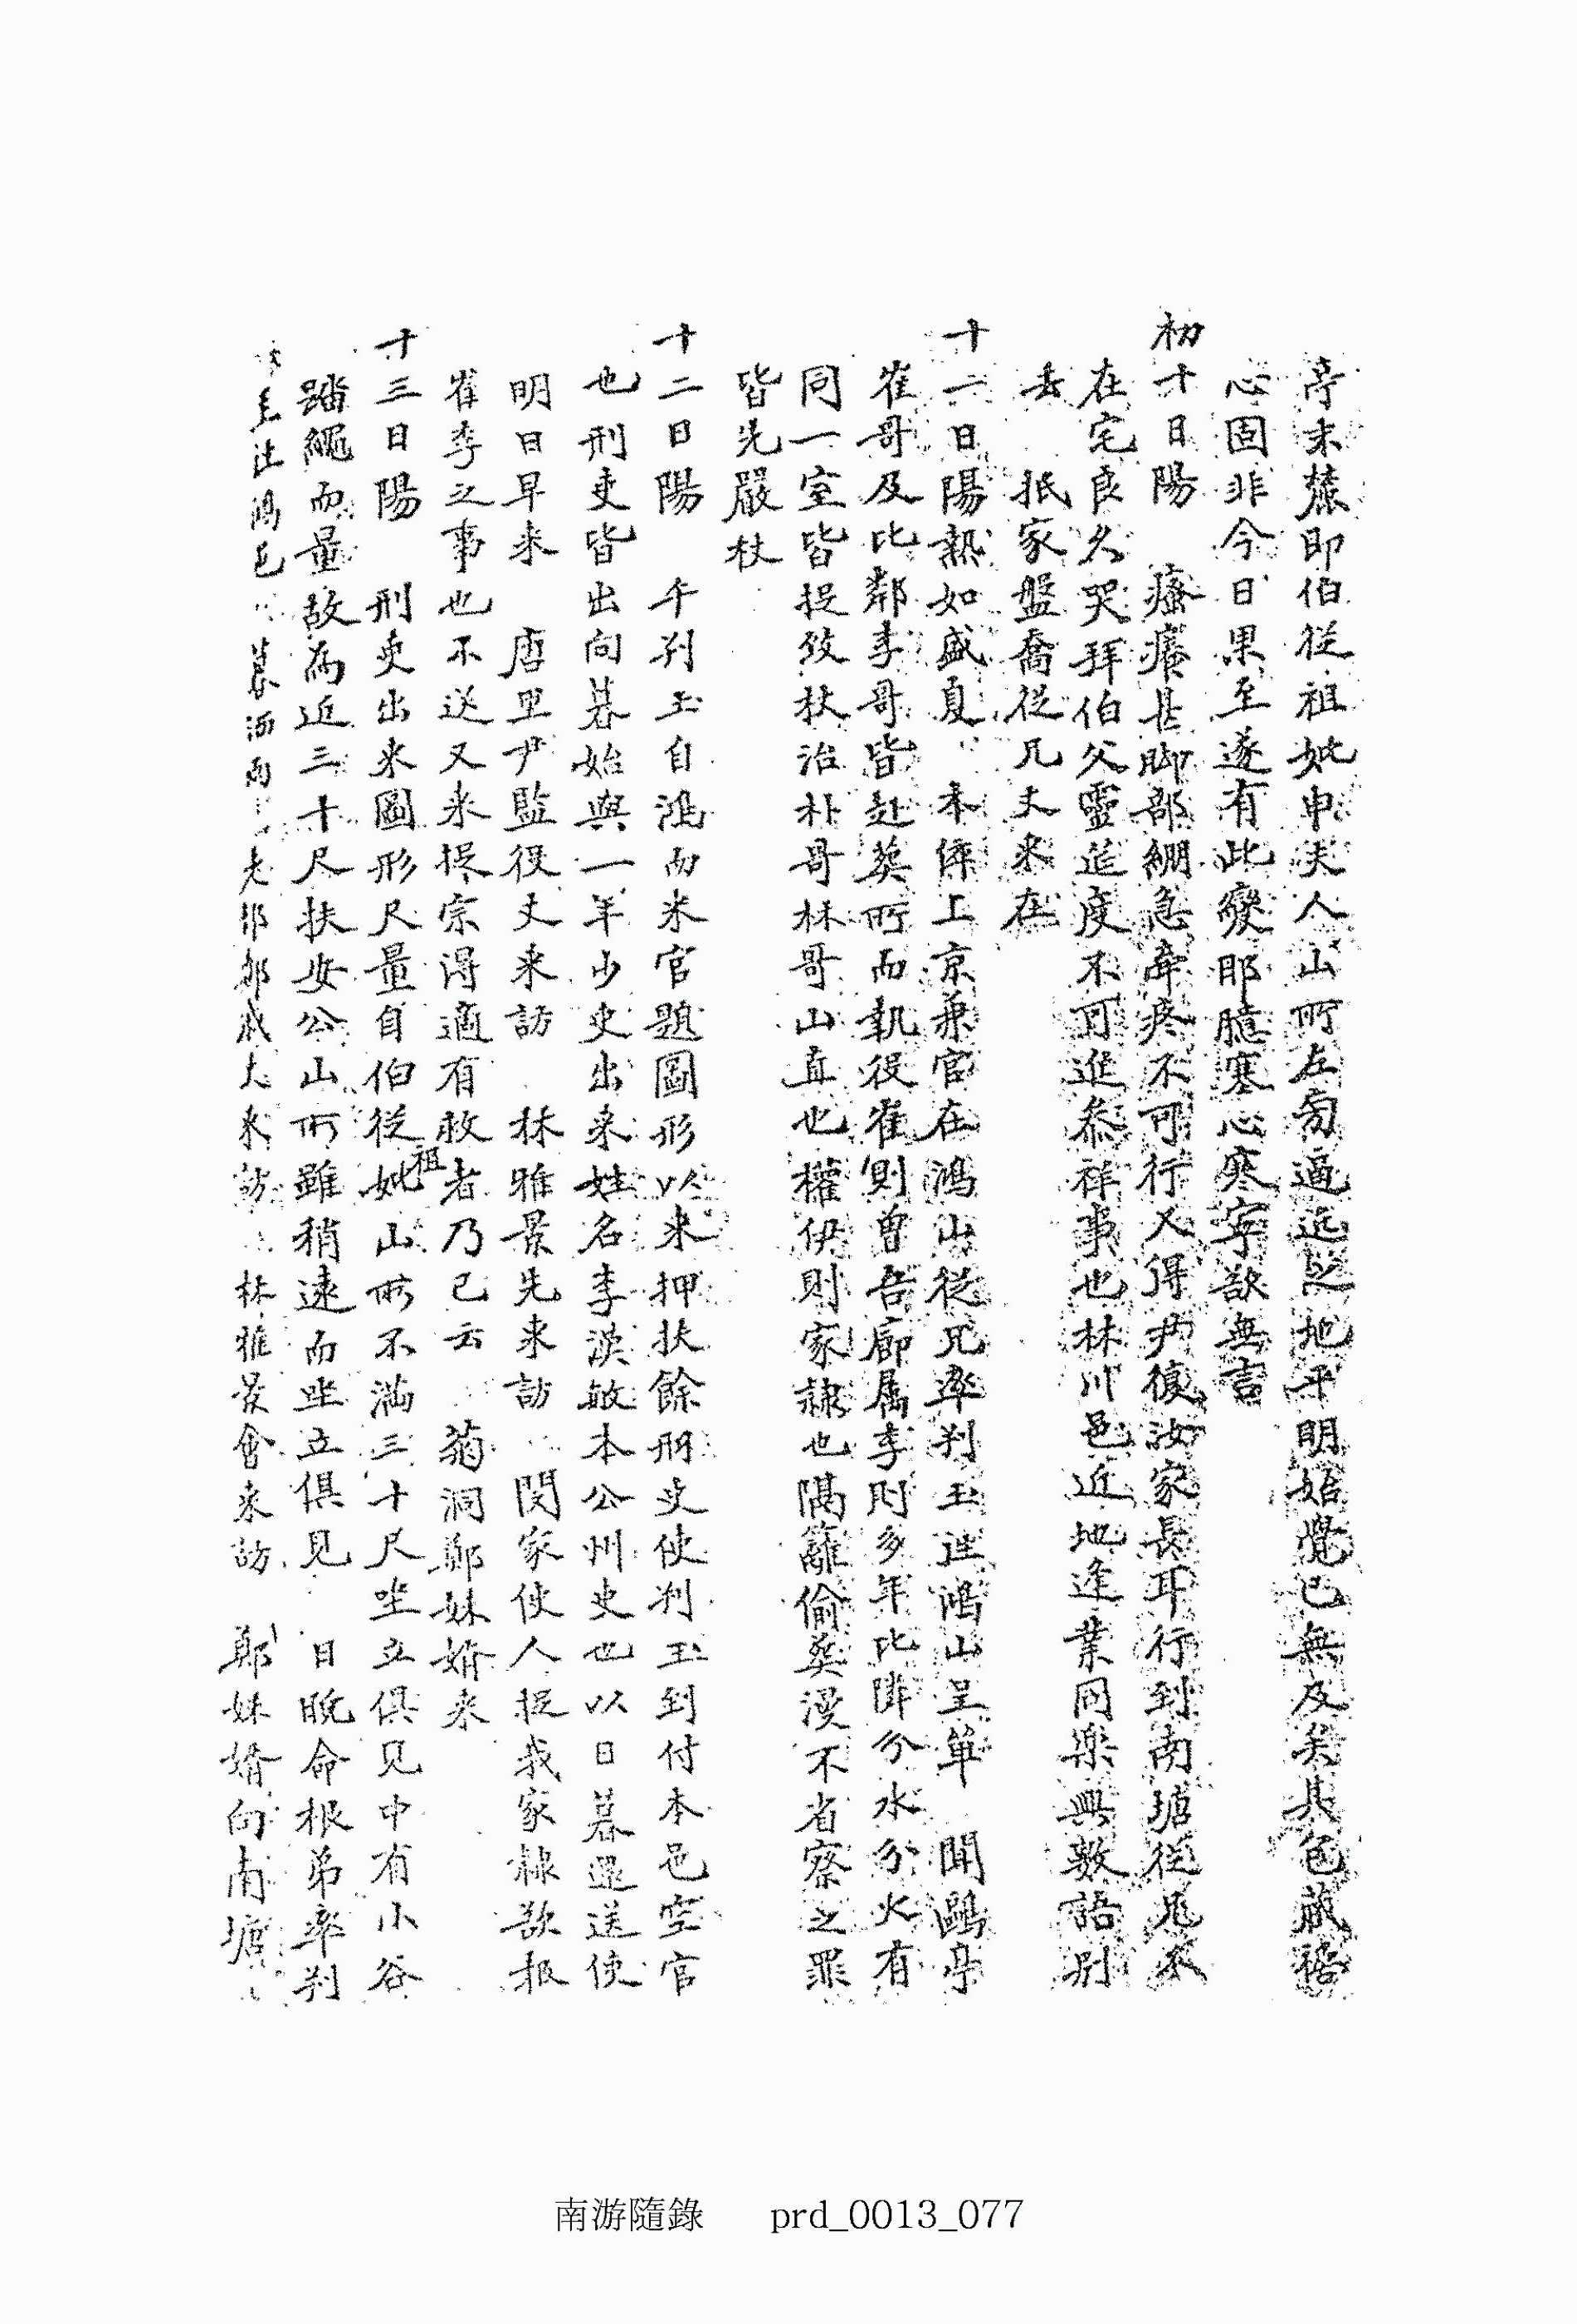 亭末麓即伯從祖妣申夫人山所左旁逼近之地平明始覺已無及矣其包藏禍
心固非今日果至遂有此變耶臆塞心寒寧欲無言
初十日陽 瘙癢甚脚部綳急牽疼不可行又得尹復汝家長耳行到南塘從兄不
在宅良久哭拜伯父靈筵度不可進參祥事也林川邑近地逢業同樂興數語別
去 抵家盤喬從兄丈來在
十一日陽熱如盛夏 本倅上京兼官在鴻山從兄率判玉進鴻山呈單 聞鷗亭
崔哥及比鄰李哥皆赴葬所而執役崔則曾吾廊属李則多年比隣分水分火有
同一室皆捉致杖治朴哥林哥山直也權伊則家隷也隔籬偷葬漫不省察之罪
皆先嚴杖
十二日陽 午判玉自鴻而來官題圖形以來押扶餘刑吏使判玉到付本邑空官
也刑吏皆出向暮始與一年少吏出來姓名李漢敏本公州吏也以日暮還送使
明日早來 唐里尹監役丈來訪 林雅景先來訪 閔家使人捉我家隷欲报
崔李之事也不送又來捉宗得適有救者乃已云 菊洞鄭妹婿來
十三日陽 刑吏出來圖形尺量自伯從祖妣山所不滿三十尺坐立俱見中有小谷
踏繩而量故爲近三十尺扶安公山所雖稍遠而坐立俱見 日晩命根弟率判
玉往鴻邑 暮洒雨 大郎鄭戚大來訪 林雅景會來訪 鄭妹婿向南塘